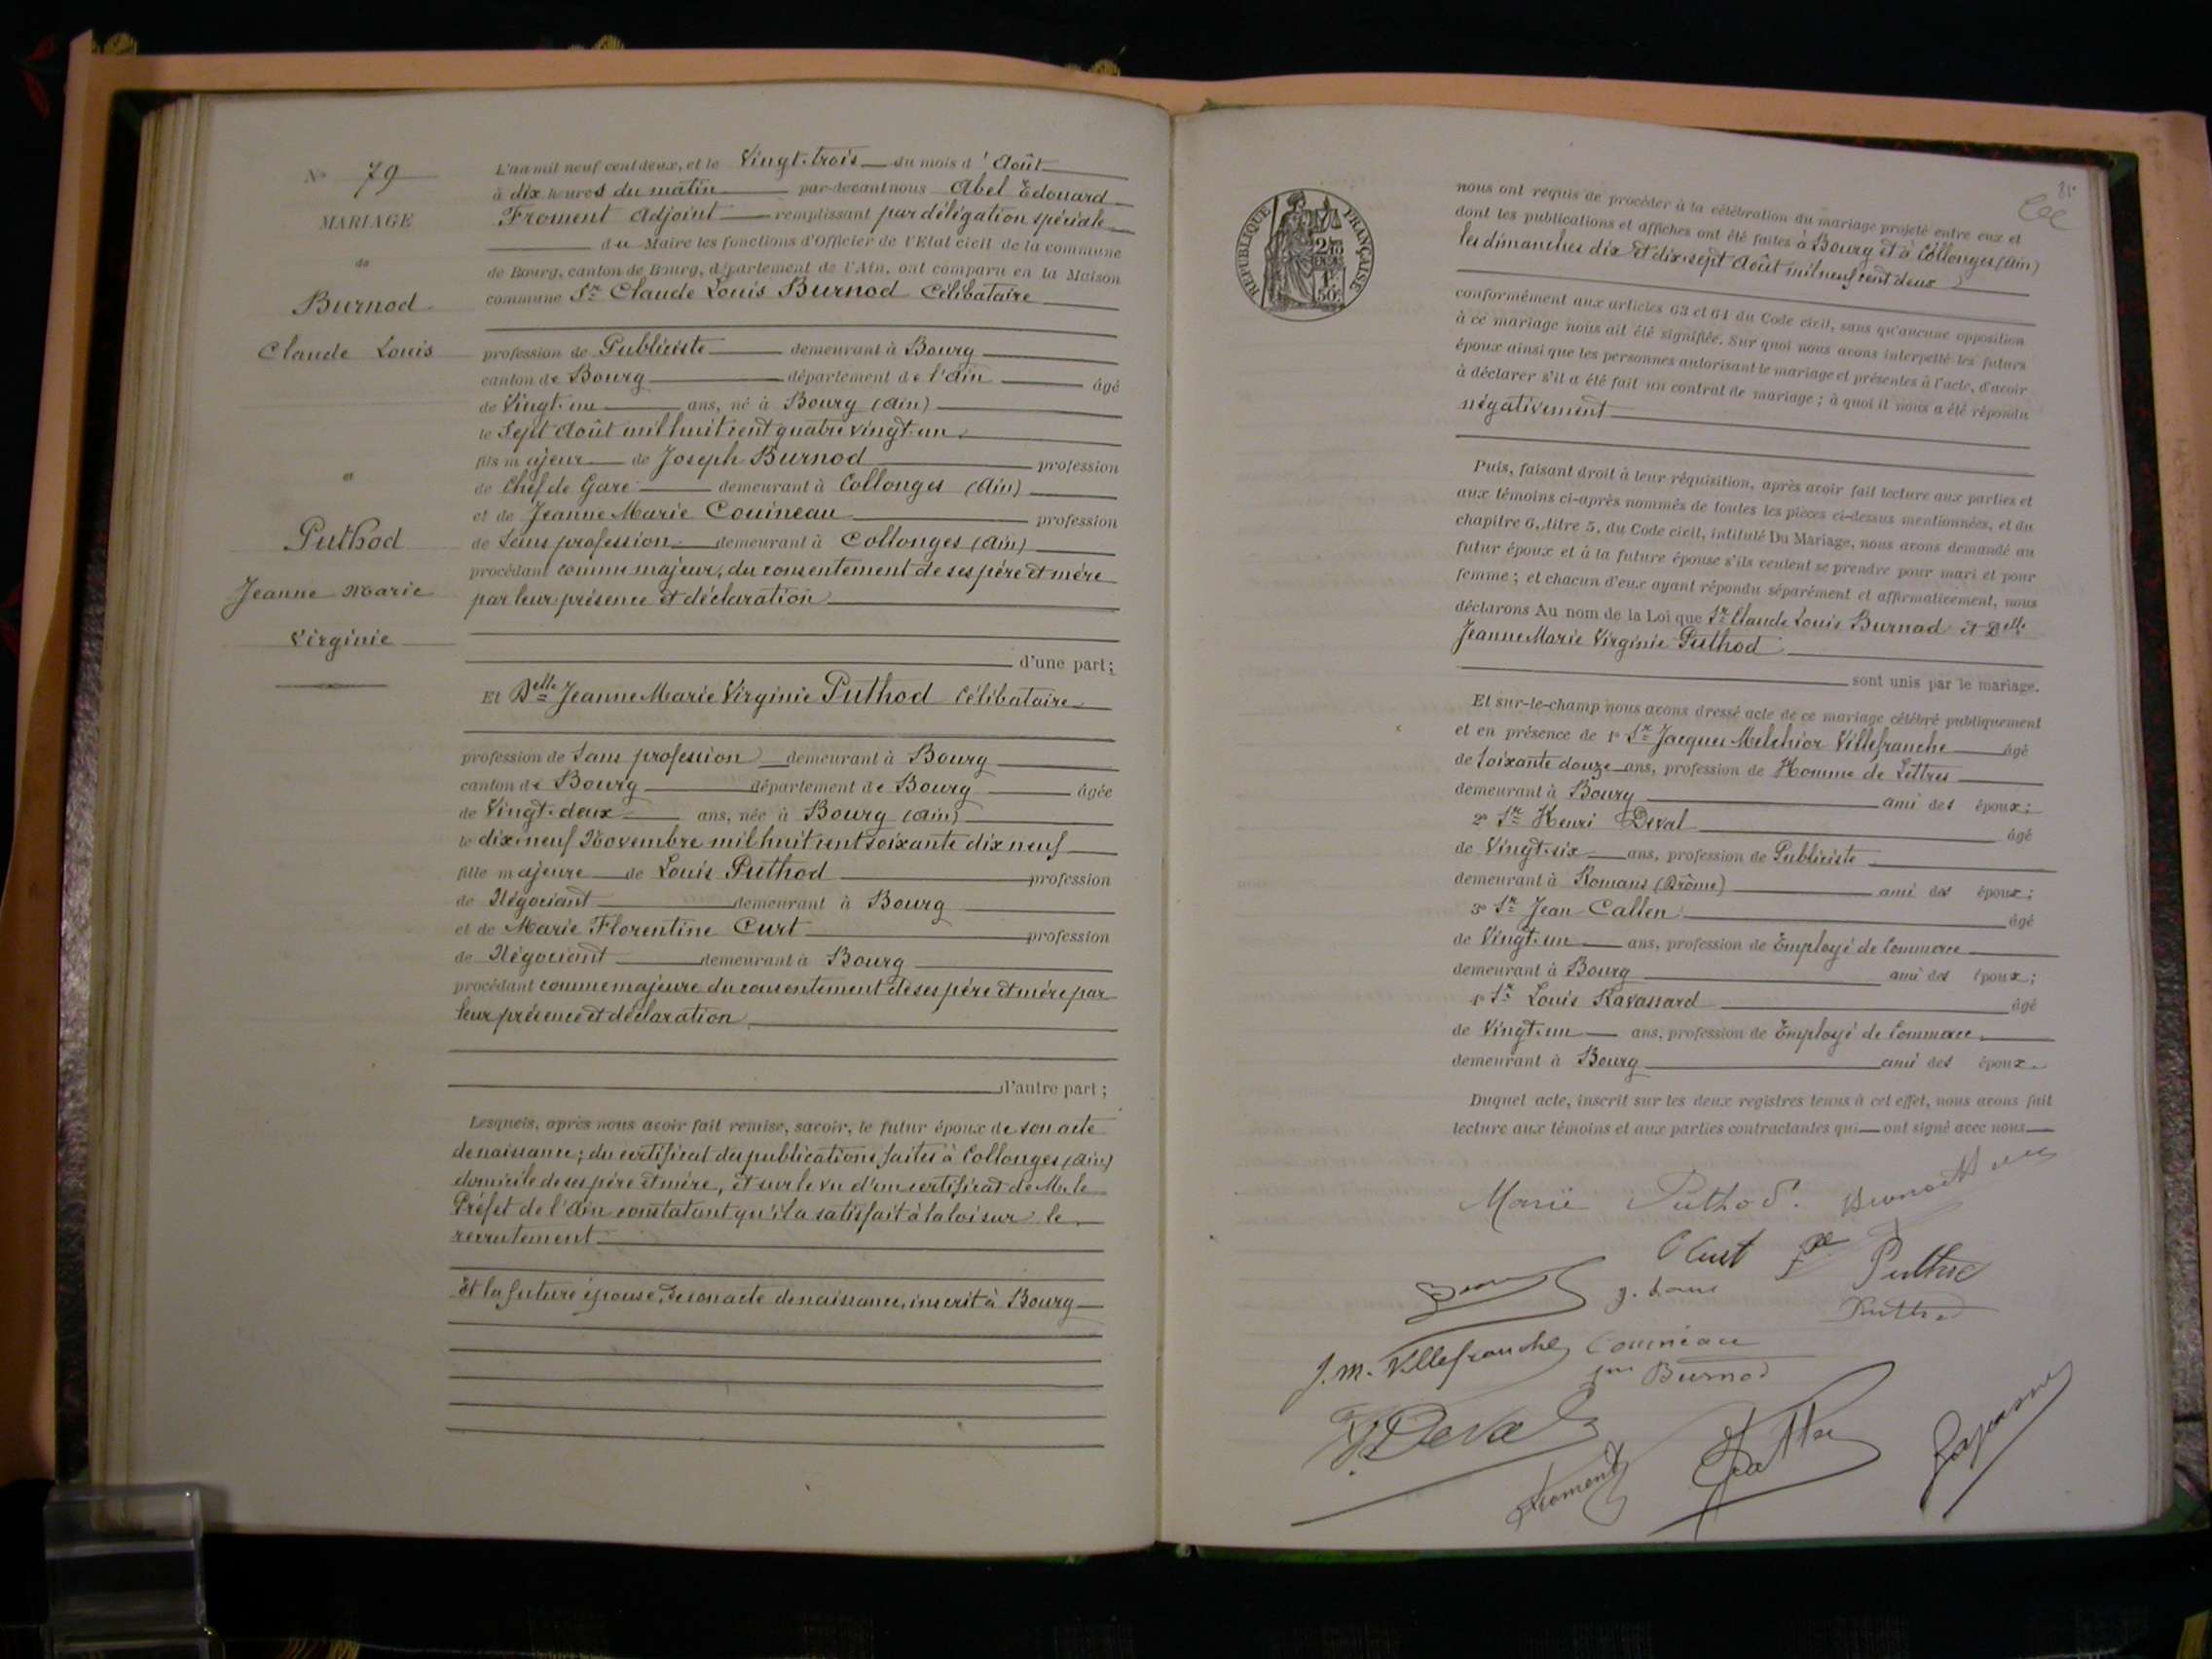 N° 79
MARIAGE
de
Burnod
Claude Louis
et
Puthod
Jeanne Marie
Virginie
L'an mil neuf cent deux, et le Vingt-trois du mois d'Août
à dix heures du matin par-devant nous Abel Edouard
Froment Adjoint remplissant par délégation spéciale
du Maire les fonctions d'Officier de l'Etat civil de la commune
de Bourg, canton de Bourg, département de l'Ain, ont comparu en la Maison
commune Sr Claude Louis Burnod Célibataire
profession de Publiciste demeurant à Bourg
canton de Bourg département de l'Ain âgé
de Vingt-un ans, né à Bourg (Ain)
le Sept Août mil huit cent quatre vingt-un
fils majeur de Joseph Burnod profession
de Chef de Gare demeurant à Collonges (Ain)
et de Jeanne Marie Couineau profession
de Sans profession demeurant à Collonges (Ain)
procédant comme majeur, du consentement de ses père et mère
par leur présence et déclaration
d'une part;
Et Delle Jeanne Marie Virginie Puthod Célibataire
profession de Sans profession demeurant à Bourg
canton de Bourg département de Bourg âgée
de Vingt-deux ans, née à Bourg (Ain)
le dix-neuf Novembre mil huit cent soixante dix neuf
fille majeure de Louis Puthod profession
de Négociant demeurant à Bourg
et de Marie Florentine Curt profession
de Négociant demeurant à Bourg
procédant comme majeure du consentement de ses père et mère par
leur présence et déclaration
d'autre part;
Lesquels, après nous avoir fait remise, savoir, le futur époux de son acte
de naissance; du certificat des publications faites à Collonges (Ain)
domicile de ses père et mère, et sur le vu d'un certificat de Mr le
Préfet de l'Ain constatant qu'il a satisfait à la loi sur le
recrutement
Et la future épouse, de son acte de naissance, inscrit à Bourg
85
REPUBLIQUE FRANÇAISE
1F.
50c
nous ont requis de procéder à la célébration du mariage projeté entre eux et
dont les publications et affiches ont été faites à Bourg et à Collonges (Ain)
les dimanches dix et dix-sept Août mil neuf cent deux
conformément aux articles 63 et 64 du Code civil, sans qu'aucune opposition
à ce mariage nous ait été signifiée. Sur quoi nous avons interpellé les futurs
époux ainsi que les personnes autorisant le mariage et présentes à l'acte, d'avoir
à déclarer s'il a été fait un contrat de mariage; à quoi il nous a été répondu
négativement
Puis, faisant droit à leur réquisition, après avoir fait lecture aux parties et
aux témoins ci-après nommés de toutes les pièces ci-dessus mentionnées, et du
chapitre 6, titre 5, du Code civil, intitulé Du Mariage, nous avons demandé au
futur époux et à la future épouse s'ils veulent se prendre pour mari et pour
femme; et chacun d'eux ayant répondu séparément et affirmativement, nous
déclarons Au nom de la Loi que Sr Claude Louis Burnod et Delle
Jeanne Marie Virginie Puthod
sont unis par le mariage.
Et sur-le-champ nous avons dressé acte de ce mariage célébré publiquement
et en présence de 1° Sr Jacques Melchior Villefranche âgé
de soixante douze ans, profession de Homme de Lettres
demeurant à Bourg ami des époux;
2° Sr Henri Deval âgé
de Vingt-six ans, profession de Publiciste
demeurant à Romans (Drôme) ami des époux;
3° Sr Jean Callen âgé
de Vingt-un ans, profession de Employé de Commerce
demeurant à Bourg ami des époux;
4° Sr Louis Ravassard âgé
de Vingt-un ans, profession de Employé de Commerce
demeurant à Bourg ami des époux.
Duquel acte, inscrit sur les deux registres tenus à cet effet, nous avons fait
lecture aux témoins et aux parties contractantes qui ont signé avec nous
Marie Puthod.
Curt fe Puthod
Puthod
J. M. Villefranche Couineau
fme Burnod
H Deval
Froment